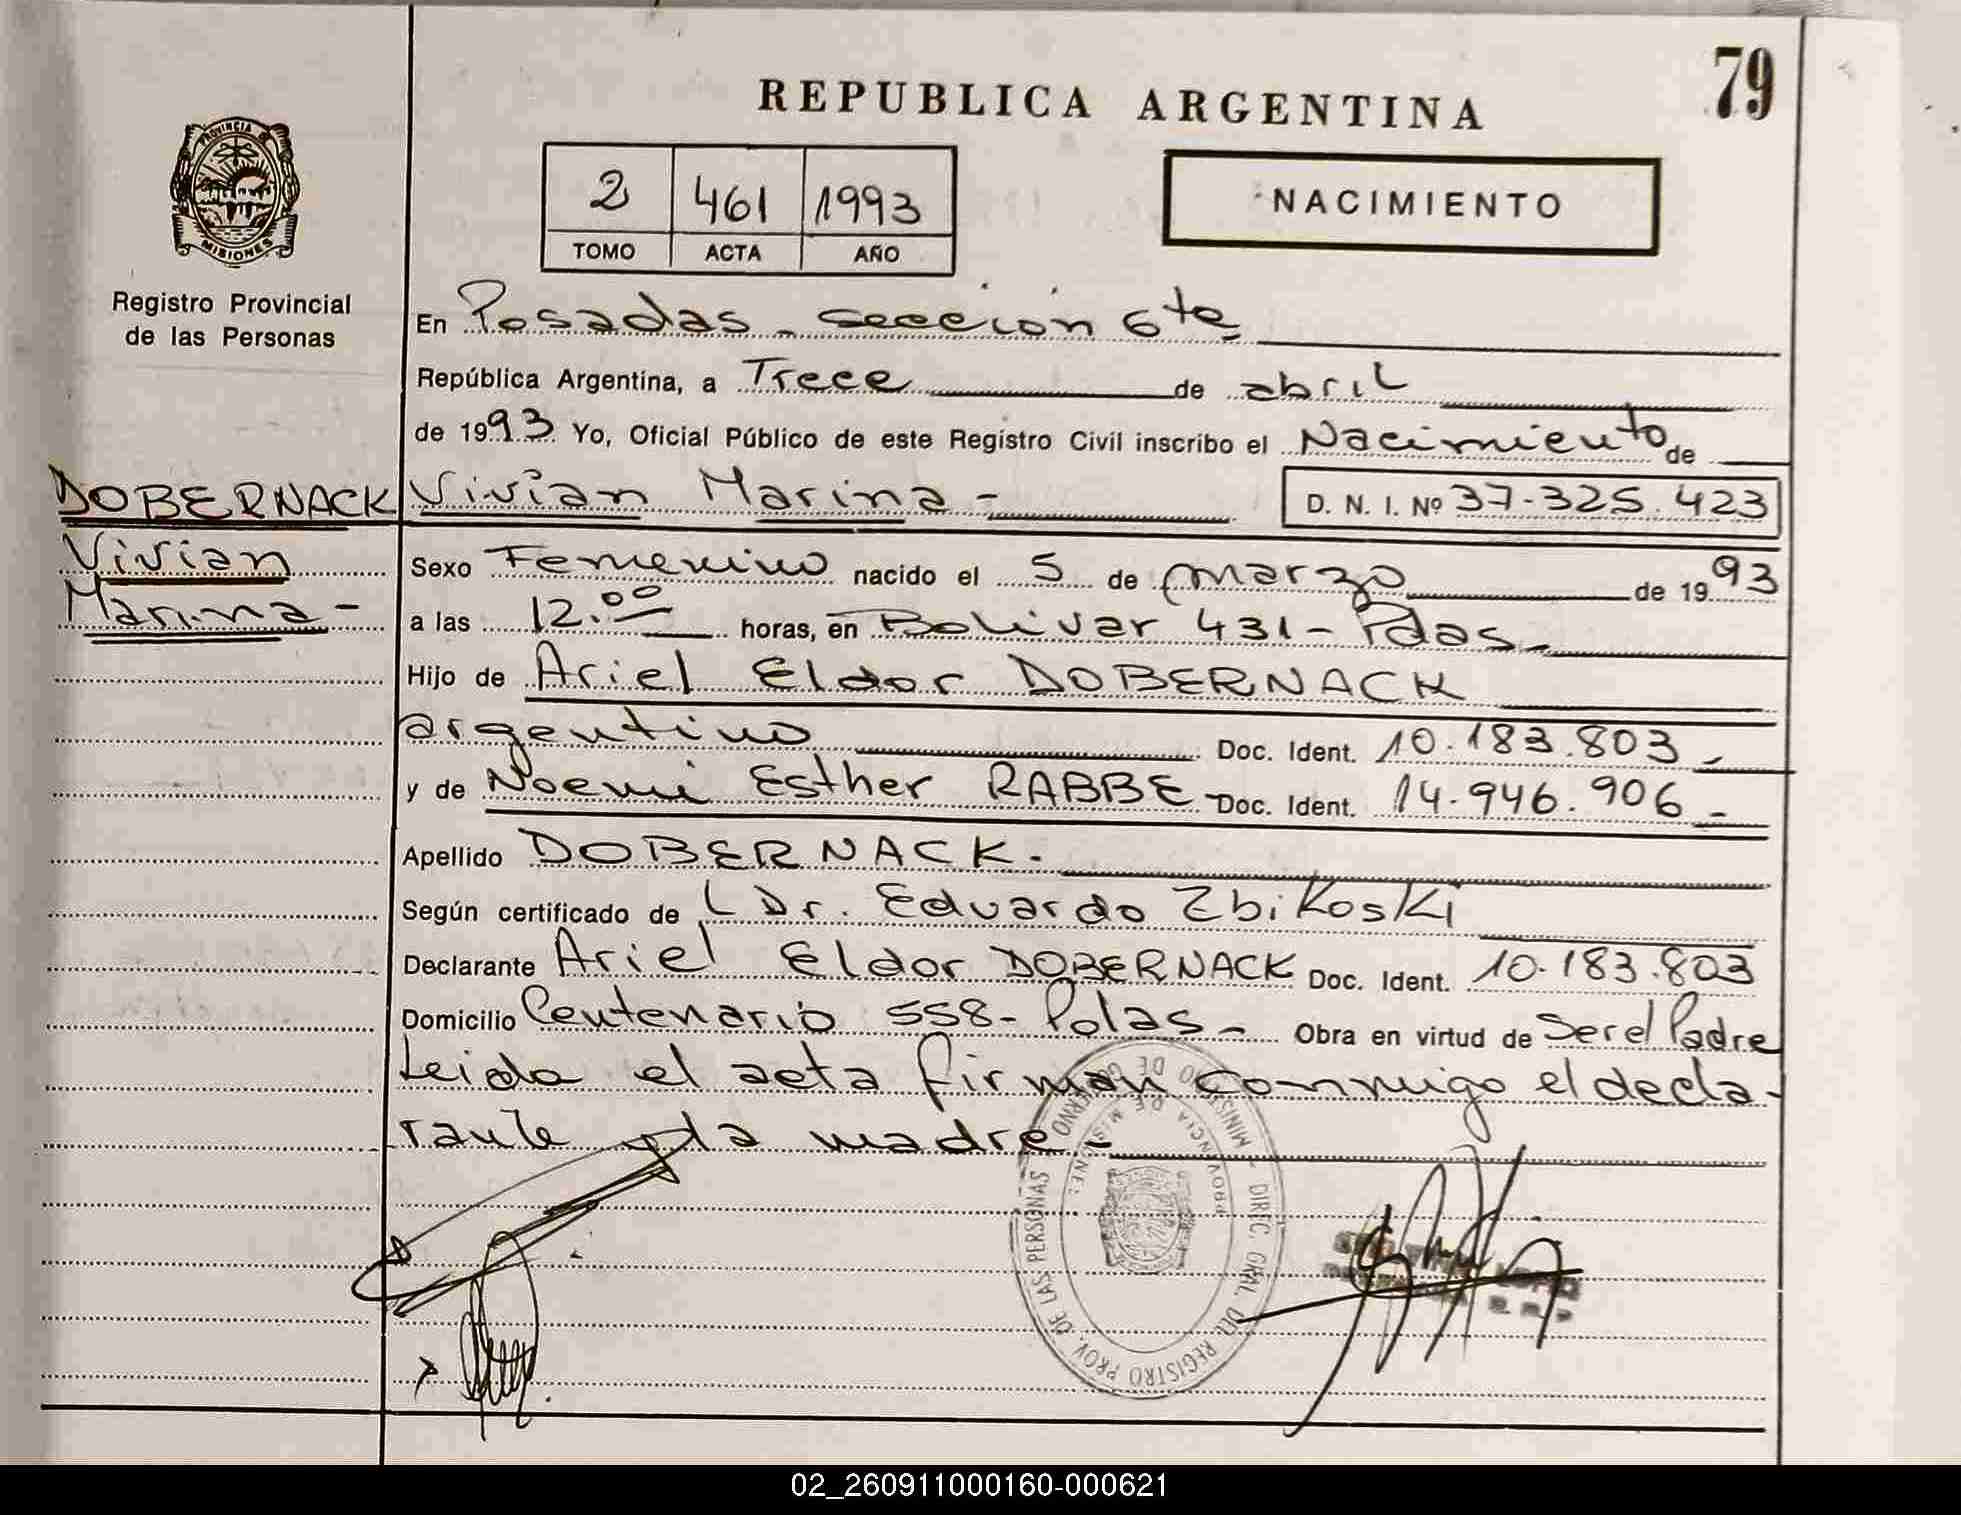 79
REPUBLICA ARGENTINA
PROVINCIA DE
MISIONES
Registro Provincial
de las Personas
2 461 1993
TOMO ACTA AÑO
NACIMIENTO
En Posadas - sección 6ta
República Argentina, a Trece de abril
de 1993 Yo, Oficial Público de este Registro Civil inscribo el Nacimiento de
DOBERNACK Vivian Marina - D. N. I. Nº 37-325.423
Vivian
Marina -
Sexo Femenino nacido el 5 de marzo de 1993
a las 12.00 horas, en Bolivar 431 - Pdas -
Hijo de Ariel Eldor DOBERNACK
argentino Doc. Ident. 10.183.803 -
y de Noemi Esther RABBE - Doc. Ident. 14.946.906 -
Apellido DOBERNACK.
Según certificado de Dr. Eduardo Zbikoski
Declarante Ariel Eldor DOBERNACK Doc. Ident. 10.183.803
Domicilio Centenario 558 - Pdas - Obra en virtud de Ser el Padre
Leida el acta firman conmigo el decla-
rante y la madre -
MINISTERIO DE GOBIERNO - DIREC. GRAL. DEL REGISTRO PROV. DE LAS PERSONAS
PROVINCIA DE MISIONES
02_260911000160-000621